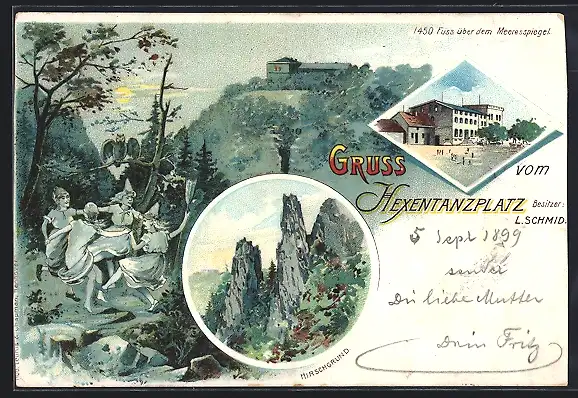 1450 Fuss über dem Meeresspiegel.
GRUSS
vom
HEXENTANZPLATZ
Besitzer:
L. SCHMID.
5 Sept 1899
Du liebe Mutter
Dein Fritz
HIRSCHGRUND